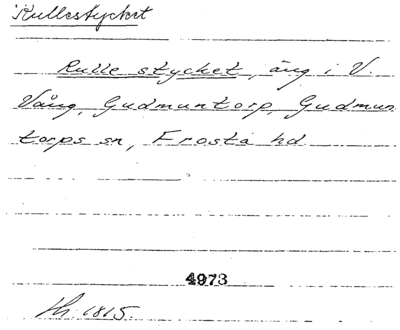 Rullestycket
Rulle stycket, äng i V.
Vång, Gudmuntorp, Gudmun
torps sn, Frosta hd
4973
1815.